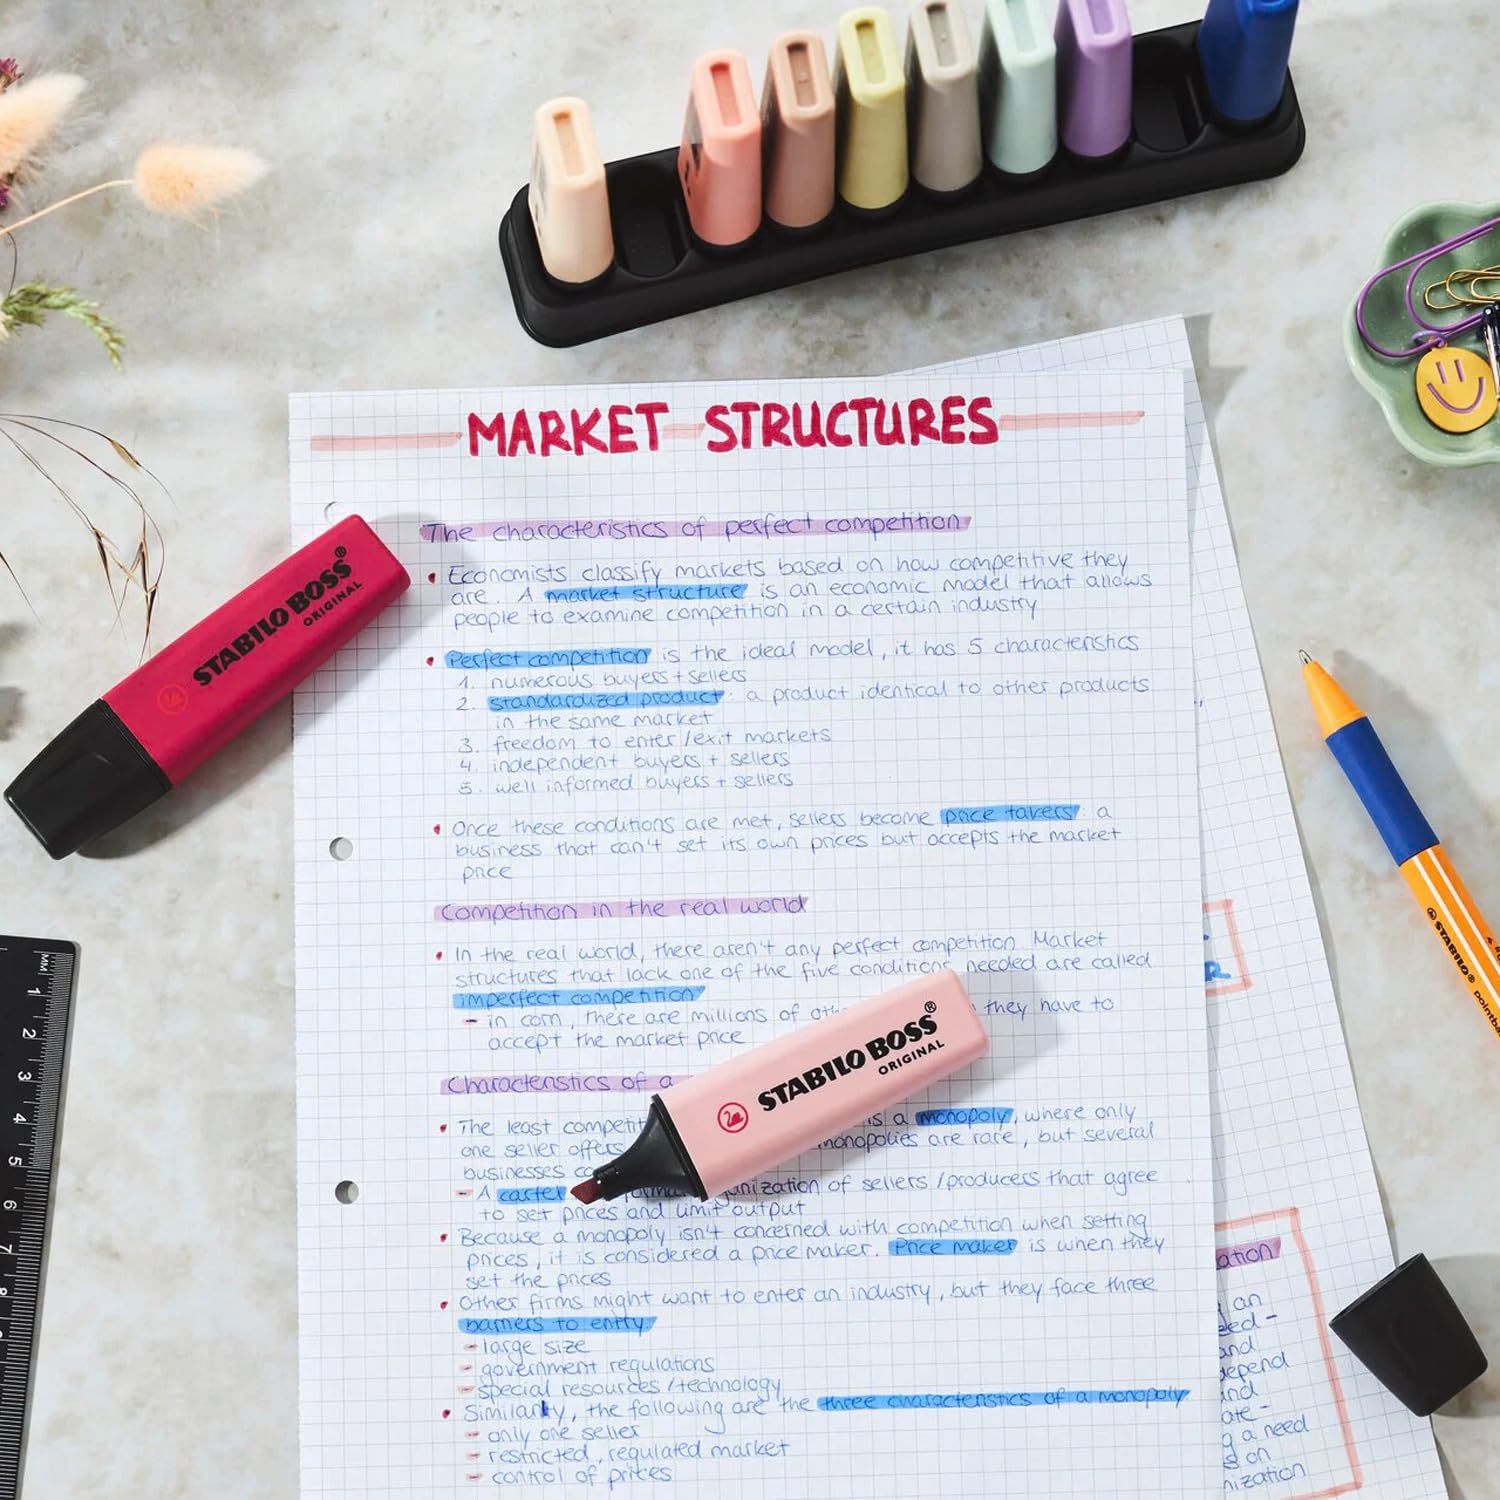 MARKET STRUCTURES
The characteristics of perfect competition
• Economists classify markets based on how competitive they
are. A market structure is an economic model that allows
people to examine competition in a certain industry
• Perfect competition is the ideal model, it has 5 characteristics
1. numerous buyers + sellers
2. standardized product: a product identical to other products
in the same market
3. freedom to enter/exit markets
4. independent buyers + sellers
5. well informed buyers + sellers
• Once these conditions are met, sellers become price takers: a
business that can't set its own prices but accepts the market
price
Competition in the real world
• In the real world, there aren't any perfect competition. Market
structures that lack one of the five conditions needed are called
imperfect competition
- in corn, there are millions of they have to
accept the market price
Characteristics of a
• The least is a monopoly, where only
one seller offers monopolies are rare, but several
businesses
- A cartel of sellers/producers that agree
to set prices and limit output
• Because a monopoly isn't concerned with competition when setting
prices, it is considered a price maker. Price maker is when they
set the prices
• Other firms might want to enter an industry, but they face three
barriers to entry:
- large size
- government regulations
- special resources/technology
• Similarly, the following are the three characteristics of a monopoly
- only one seller
- restricted, regulated market
- control of prices
STABILO BOSS®
ORIGINAL
STABILO BOSS®
ORIGINAL
STABILO®
MM
1
2
3
4
5
6
7
8
an
and
depend
a need
on